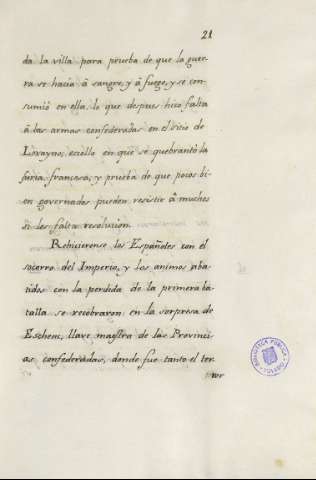 21
da la villa para prueba de que la gue-
rra se hacia â sangre, y â fuego, y se con-
sumió en ella lo que despues hizo falta
â las armas confederadas en el sitio de
Lovayno, escollo en que se quebrantó la
furia francesa, y prueba de que pocos bi-
en governados pueden resistir â muchos
si les falta resolucion.
Rehicierense los Españoles con el
socorro del Imperio, y los animos aba-
tidos con la perdida de la primera ba-
talla se recobraron en la sorpresa de
Eschem, llave maestra de las Provinci-
as confederadas, donde fue tanto el ter-
ror
BIBLIOTECA PUBLICA
TOLEDO